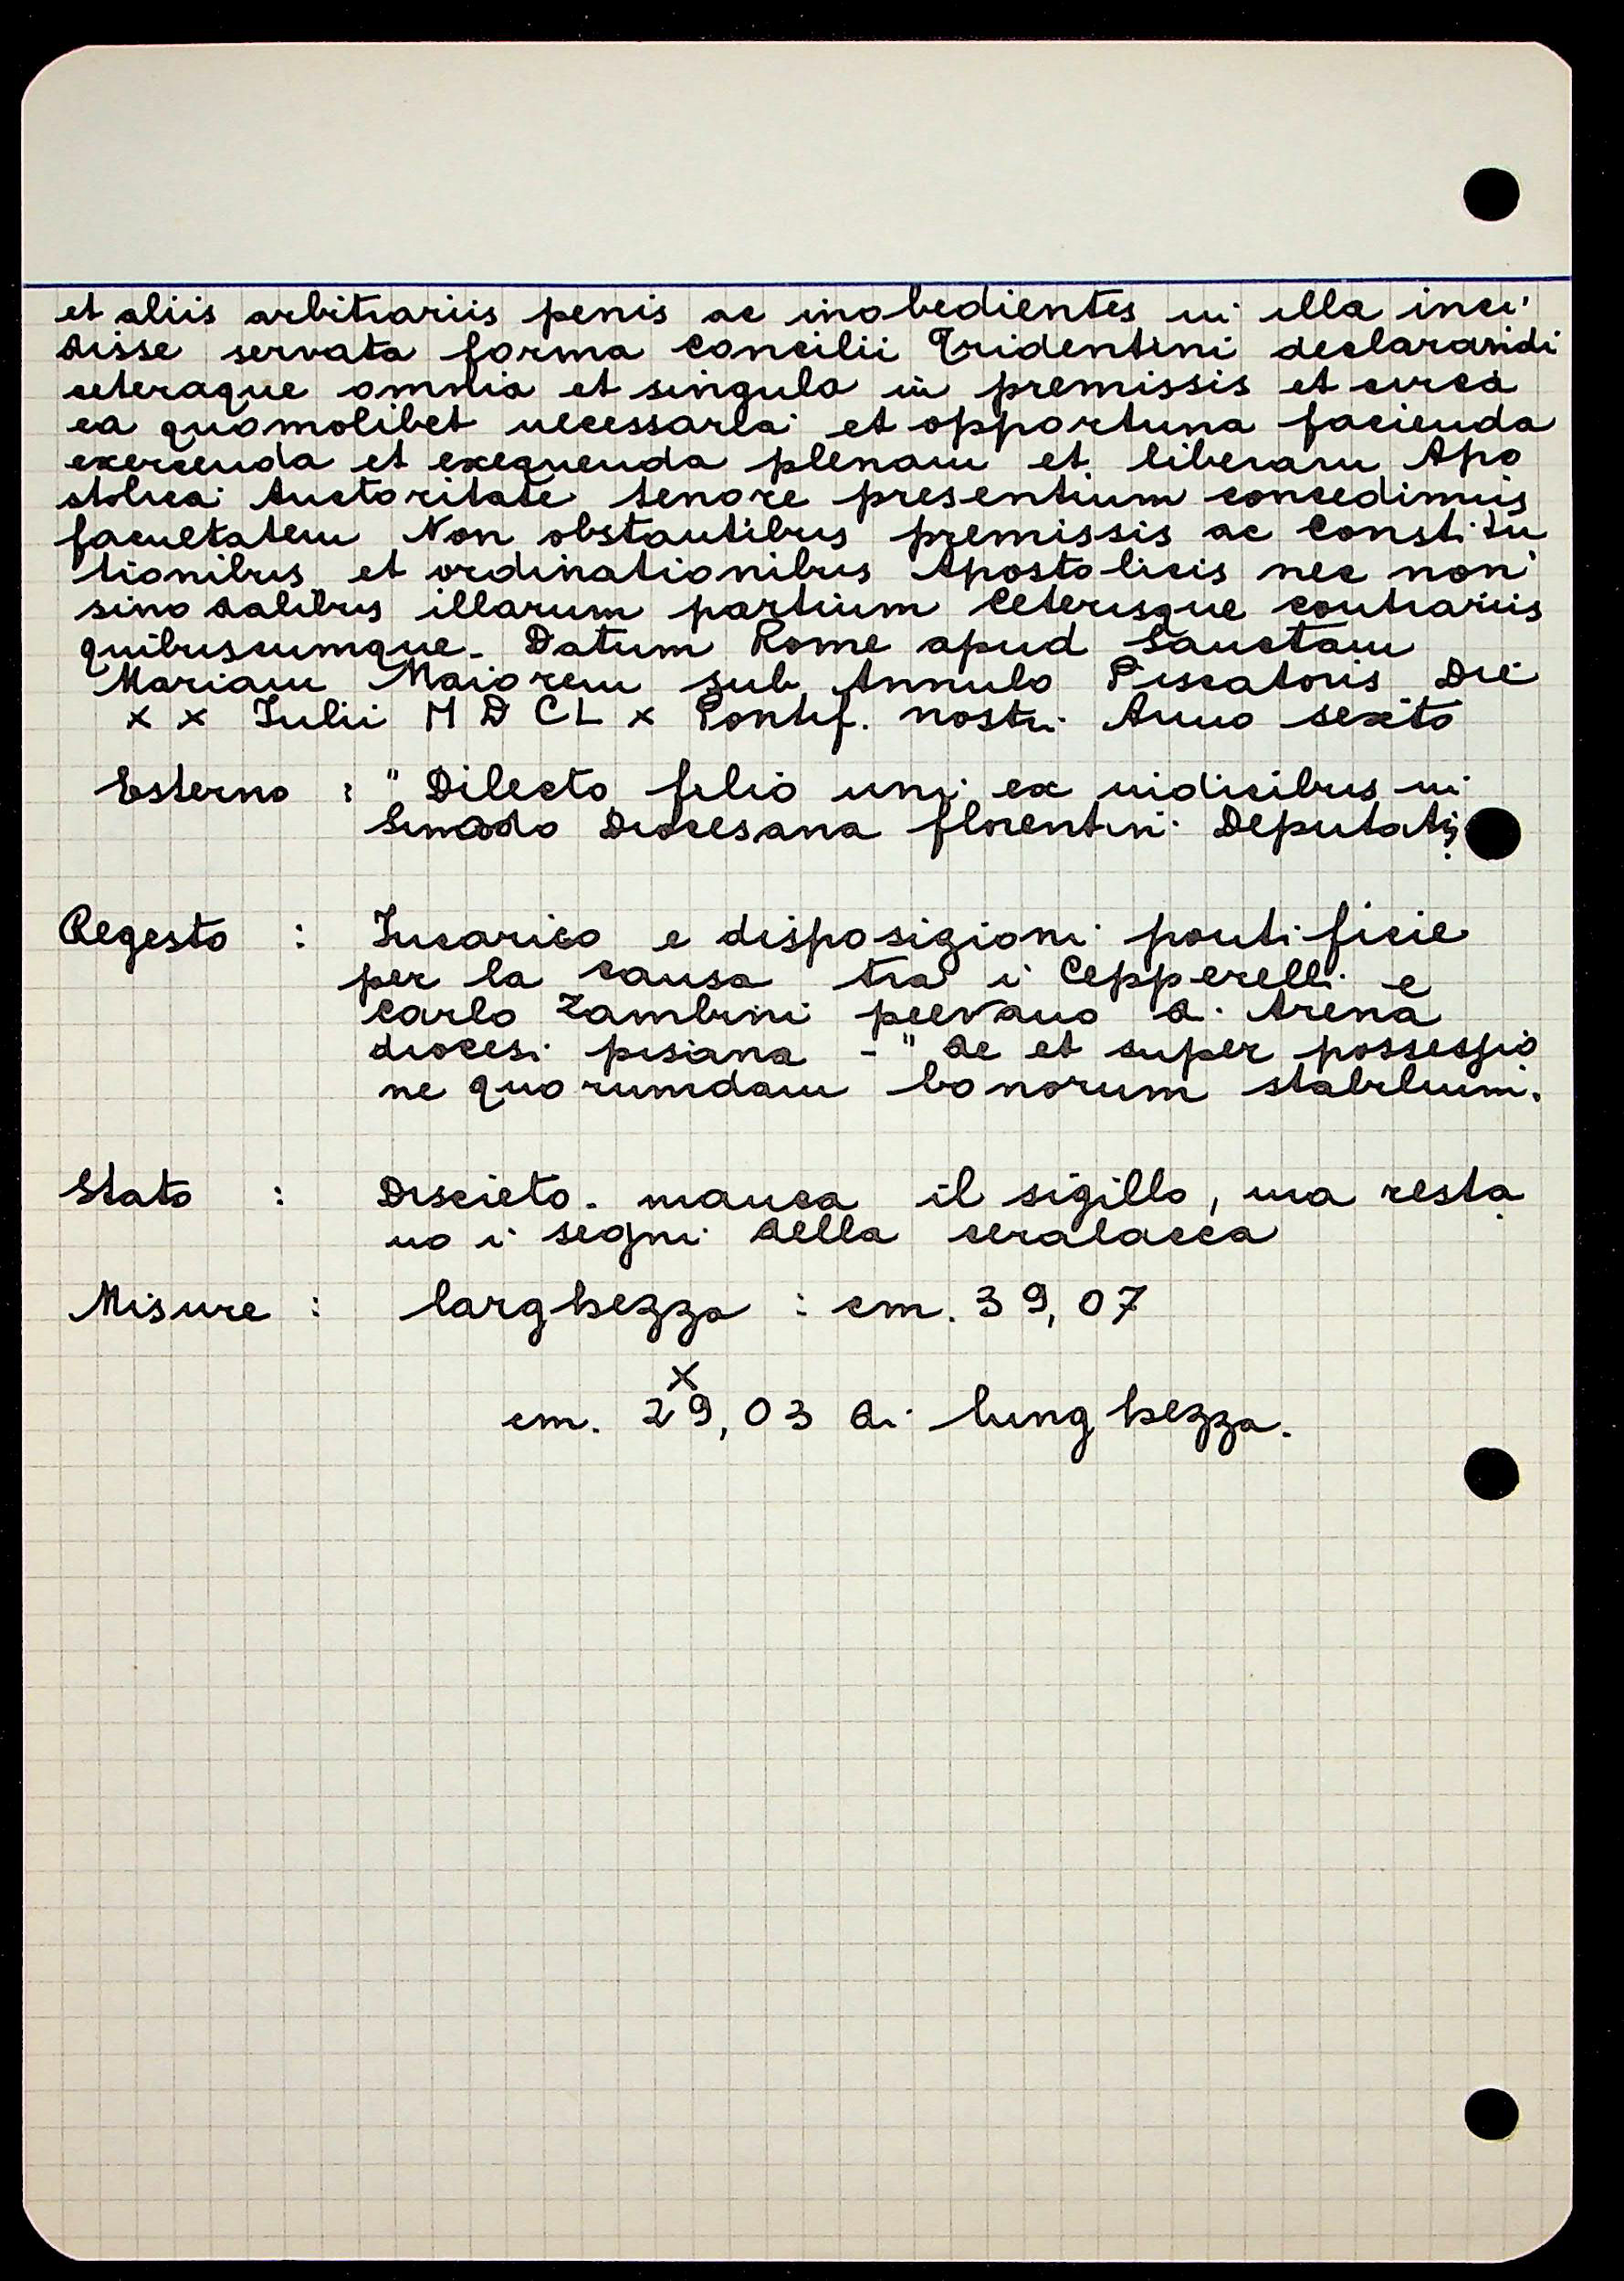 et aliis arbitrariis penis ac inobedientes in illa inci
disse servata forma Concilii Tridentini declarandi
ceteraque omnia et singula in premissis et circa
ea quomolibet necessaria et opportuna facienda
exercenda et exequenda plenam et liberam Apo
stolica Auctoritate tenore presentium concedimus
facultatem Non obstantibus premissis ac Constitu
tionibus et ordinationibus Apostolicis nec non
sinodalibus illarum partium Ceterisque contrariis
quibuscumque. Datum Rome apud Sanctam
Mariam Maiorem sub Annulo Piscatoris Die
XX Iulii MDCLX Pontif. nostri Anno sexto
Esterno : " Dilecto filio uni ex iudicibus in
Sinodo Diocesana florentin. Deputatis
Regesto : Incarico e disposizioni pontificie
per la causa tra i Cepperelli e
Carlo Zambrini pievano d. Arena
diocesi pisana - " de et super possessio
ne quorumdam bonorum stabilium.
Stato : Discreto. manca il sigillo, ma resta
no i segni della ceralacca
Misure : larghezza : cm. 39,07
x
cm. 29,03 di lunghezza.